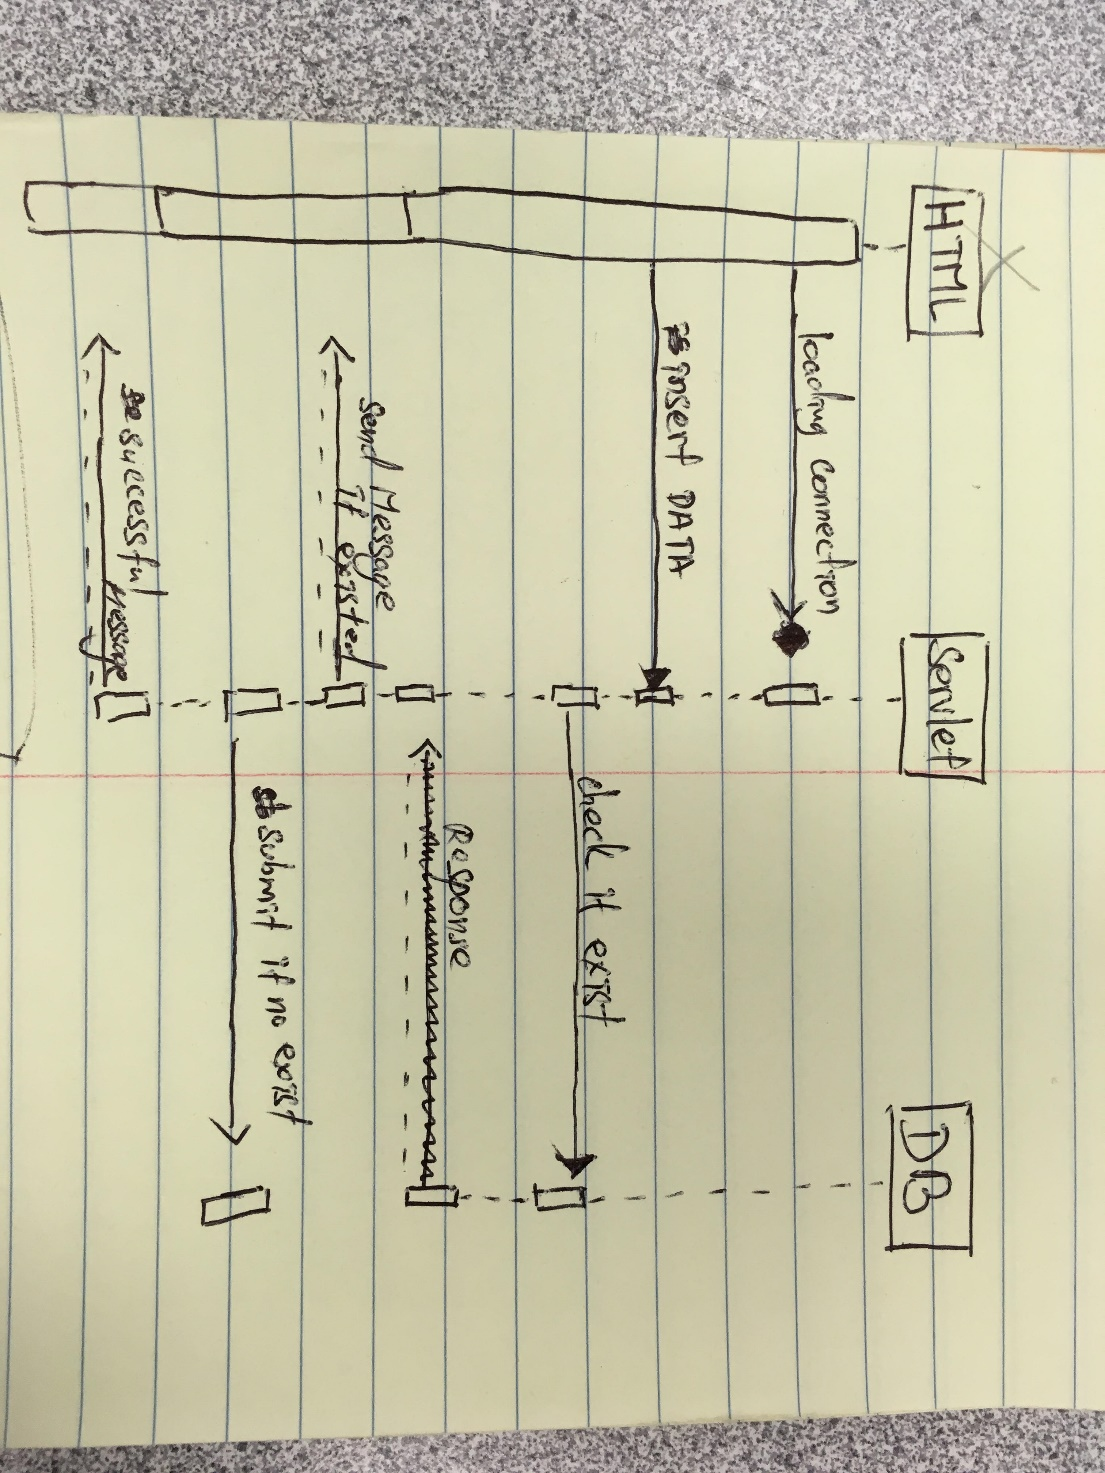 HTML
Servlet
DB
loading connection
insert DATA
check if exist
Response
Send Message
if existed
submit if no exist
successful
Message